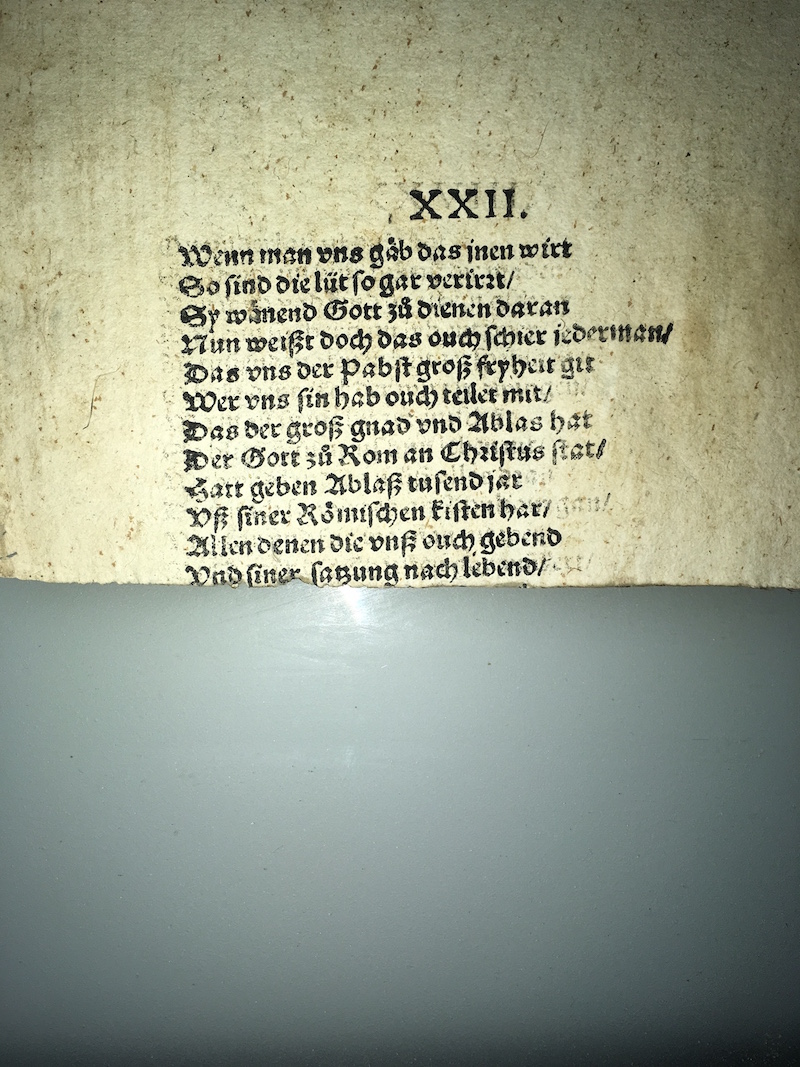 XXII.
Wenn man vns gåb das jnen wirt
So sind die lüt so gar verirrt/
Sy wånend Gott zů dienen daran
Nun weißt doch das ouch schier jederman/
Das vns der Pabst groß fryheit git
Wer vns sin hab ouch teilet mit/
Das der groß gnad vnd Ablas hat
Der Gott zů Rom an Christus stat/
Hatt geben Ablaß tusend jar
Vß siner Römischen kisten har/
Allen denen die vnß ouch gebend
Vnd siner satzung nach lebend/